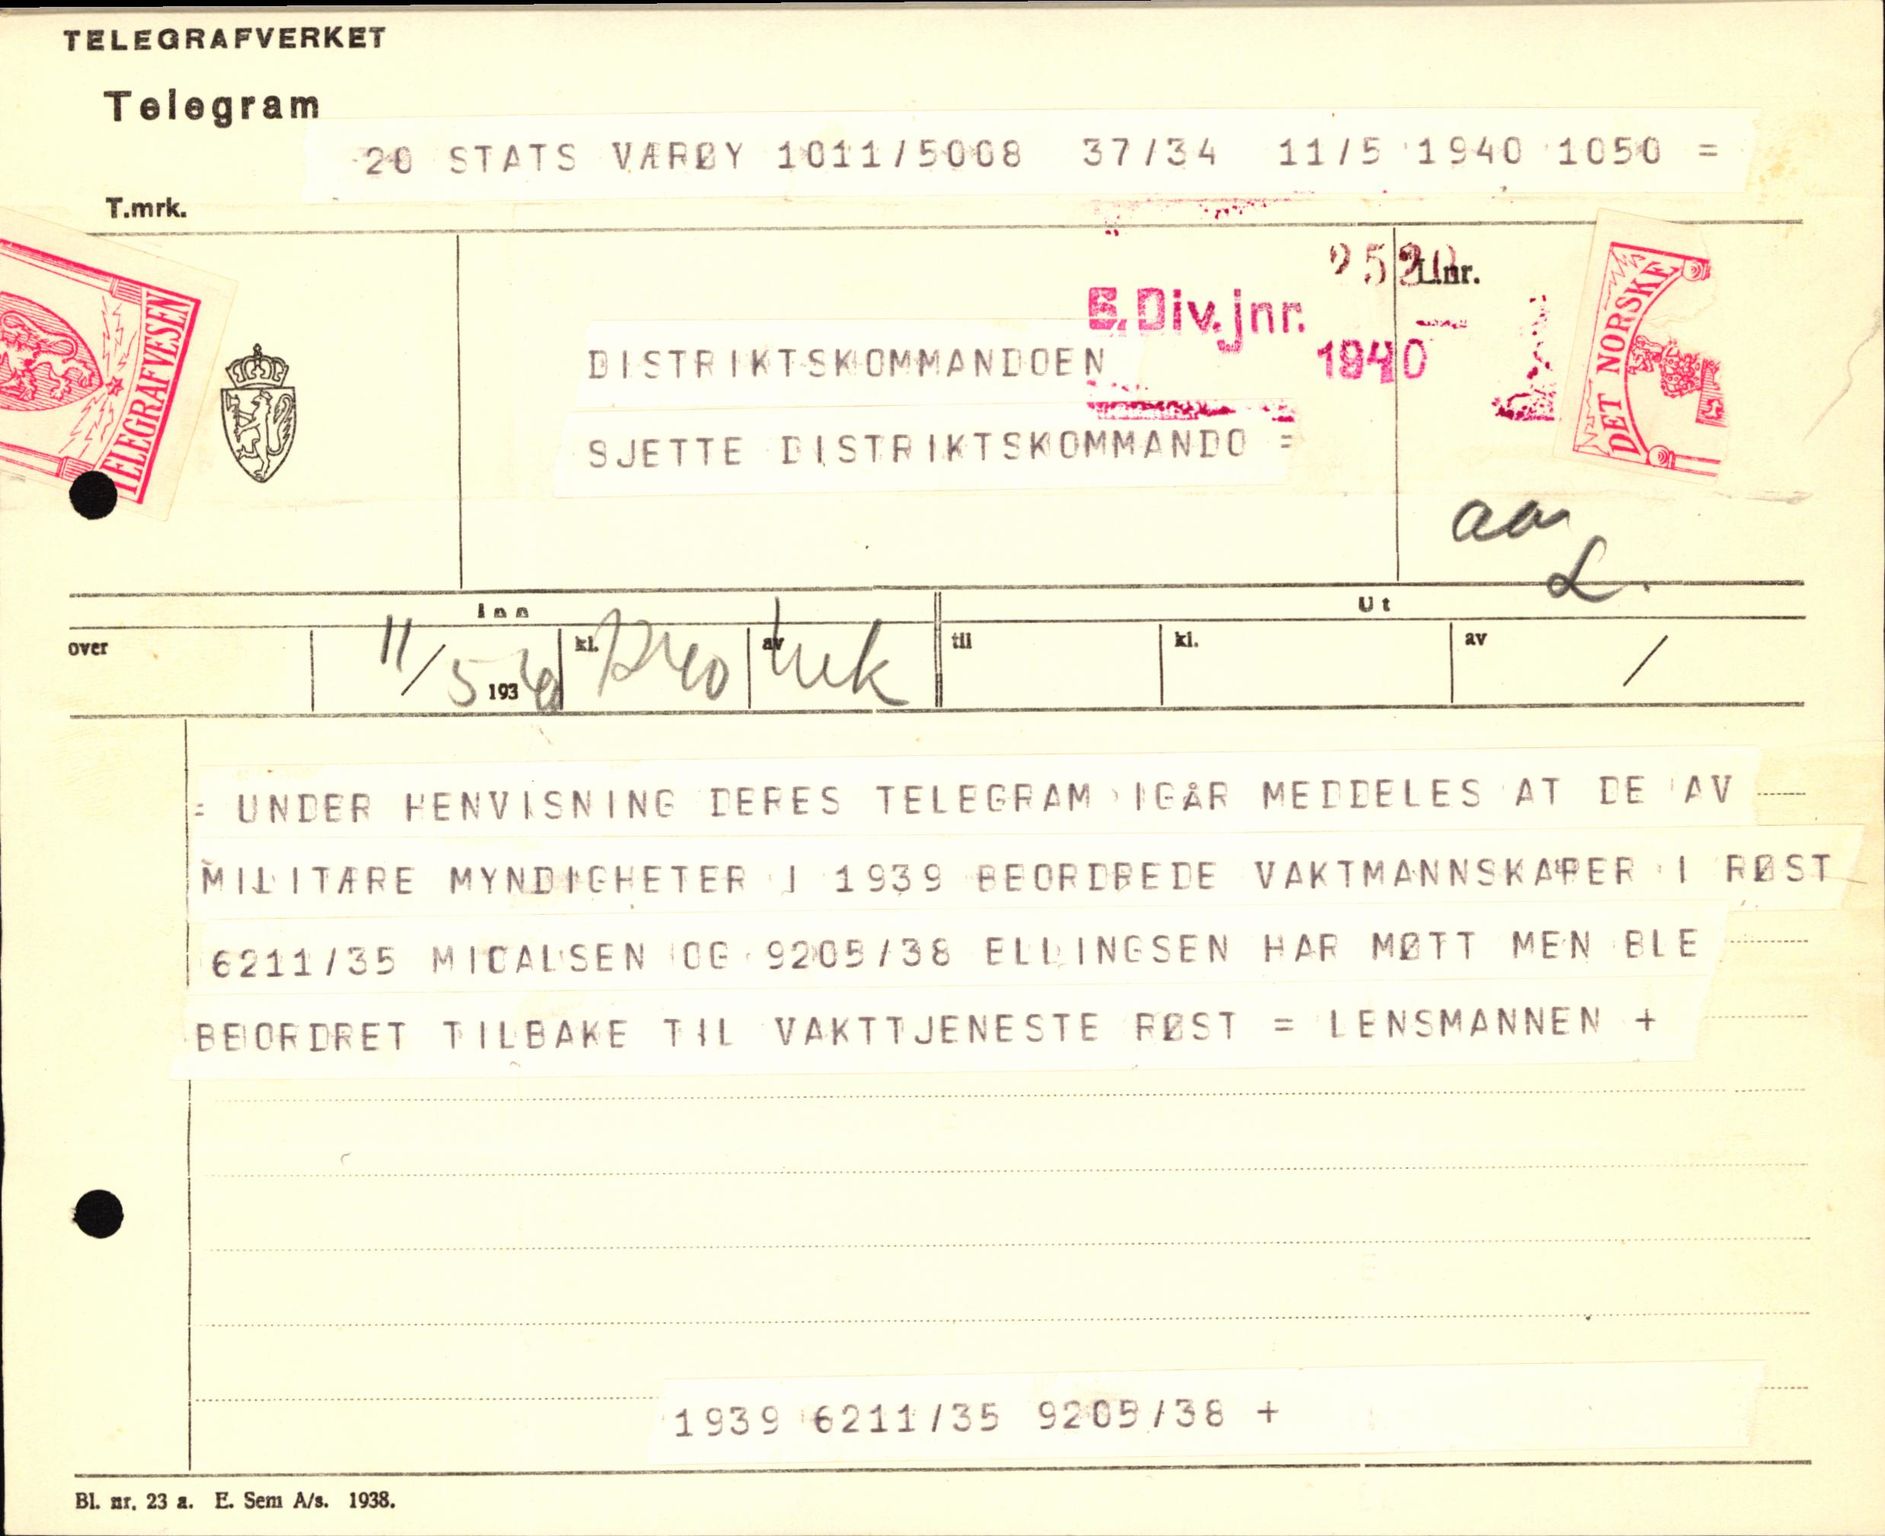 TELEGRAFVERKET
Telegram
20 STATS VÆRØY 1011/5008 37/34 11/5 1940 1050 =
T.mrk.
TELEGRAFVESEN
L.nr.
6. Div. jnr.
1940
DET NORSKE
DISTRIKTSKOMMANDOEN
SJETTE DISTRIKTSKOMMANDO =
aa
L.
Inn
Ut
over
11/5 1940
kl. 1240
av
til
kl.
av
/
= UNDER HENVISNING DERES TELEGRAM IGÅR MEDDELES AT DE AV
MILITÆRE MYNDIGHETER I 1939 BEORDREDE VAKTMANNSKAPER I RØST
6211/35 MICALSEN OG 9205/38 ELLINGSEN HAR MØTT MEN BLE
BEORDRET TILBAKE TIL VAKTTJENESTE RØST = LENSMANNEN +
1939 6211/35 9205/38 +
Bl. nr. 23 a. E. Sem A/s. 1938.